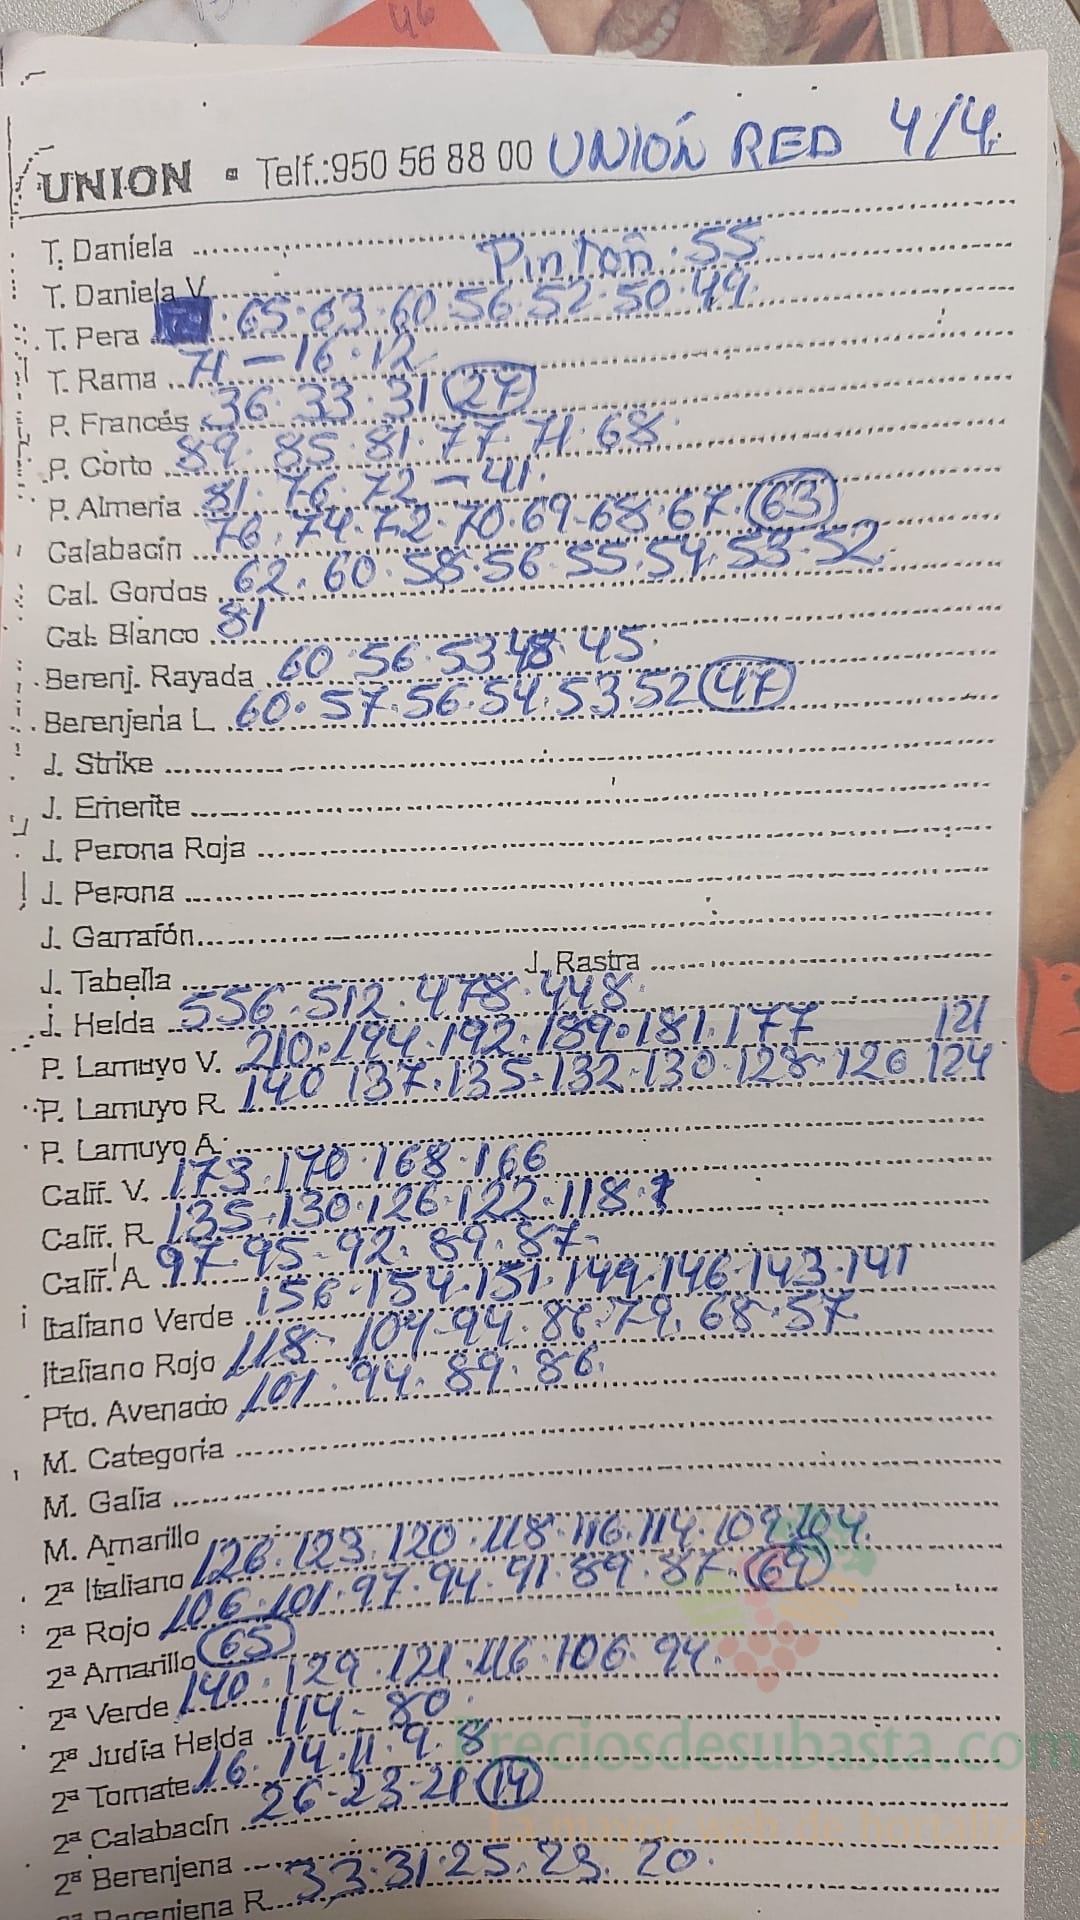 46
UNION ▪ Telf.:950 56 88 00 UNIÓN RED 4/4.
T. Daniela
T. Daniela V. Pintón . 55
T. Pera . 65 . 63 . 60 . 56 . 52 . 50 . 49
T. Rama 71 - 16 . 12
P. Francés 36 . 33 . 31 (27)
P. Corto 89 . 85 . 81 . 77 . 71 . 68
P. Almeria 81 . 76 . 72 - 41
Calabacín 76 . 74 . 72 . 70 . 69 . 68 . 67 . (63)
Cal. Gordos 62 . 60 . 58 . 56 . 55 . 54 . 53 . 52
Cal. Blanco 81
Berenj. Rayada 60 . 56 . 53 48 . 45
Berenjena L 60 . 57 . 56 . 54 . 53 . 52 (47)
J. Strike
J. Emerite
J. Perona Roja
J. Perona
J. Garrafón
J. Tabella J. Rastra
J. Helda 556 . 512 . 478 . 448
P. Lamuyo V. 210 . 194 . 192 . 189 . 181 . 177 121
P. Lamuyo R. 140 137 . 135 . 132 . 130 . 128 . 126 124
P. Lamuyo A.
Calif. V. 173 . 170 . 168 . 166
Calif. R. 135 . 130 . 126 . 122 . 118 .
Calif. A 97 . 95 . 92 . 89 . 87
Italiano Verde 156 . 154 . 151 . 149 . 146 . 143 . 141
Italiano Rojo 118 . 104 . 94 . 86 . 79 . 68 . 57
Pto. Avenado 101 . 94 . 89 . 86
M. Categoria
M. Galia
M. Amarillo
2ª Italiano 126 . 123 . 120 . 118 . 116 . 114 . 109 . 104
2ª Rojo 106 . 101 . 97 . 94 . 91 . 89 . 87 . (69)
2ª Amarillo (65)
2ª Verde 140 . 129 . 121 . 116 . 106 . 94
2ª Judía Helda 114 - 80
2ª Tomate 16 . 14 . 11 . 9 . 8
2ª Calabacín 26 . 23 . 21 (19)
2ª Berenjena
Berenjena R. 33 . 31 . 25 . 23 . 20
Preciosdesubasta.com
La mayor web de hortalizas